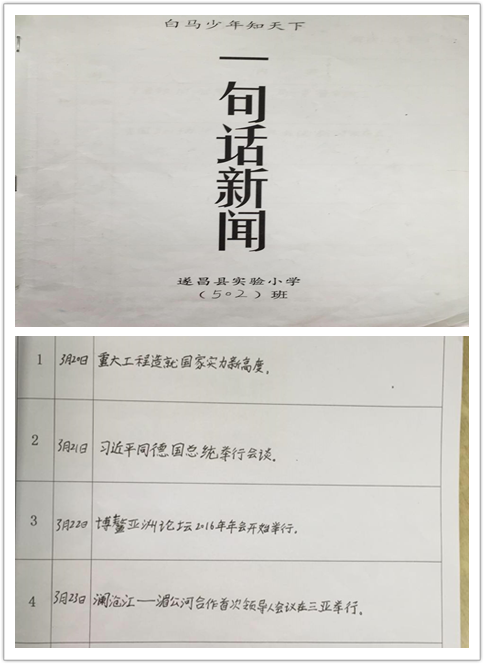 白马少年知天下
一句话新闻
遂昌县实验小学
（502）班
1 3月20日 重大工程造就国家实力新高度。
2 3月21日 习近平同德国总统举行会谈。
3 3月22日 博鳌亚洲论坛2016年年会开始举行。
4 3月23日 澜沧江——湄公河合作首次领导人会议在三亚举行。